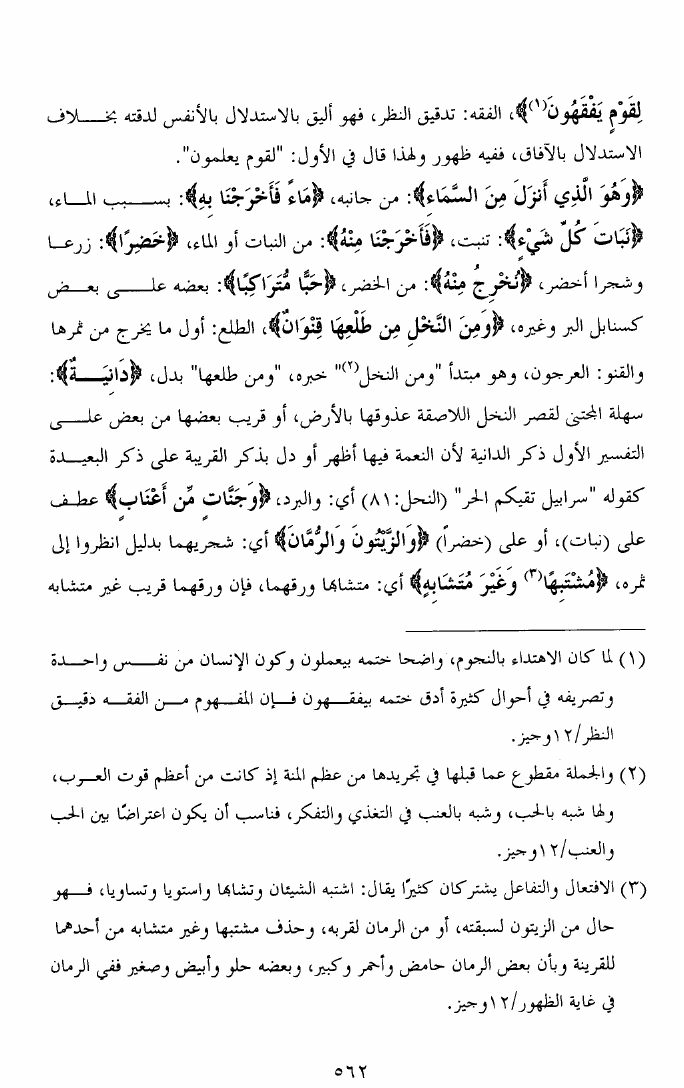 لِقَوْمٍ يَفْقَهُونَ(١)﴾، الفقه: تدقيق النظر، فهو أليق بالاستدلال بالأنفس لدقته بخـــلاف
الاستدلال بالآفاق، ففيه ظهور ولهذا قال في الأول: "لقوم يعلمون".
﴿وَهُوَ الَّذِي أَنزَلَ مِنَ السَّمَاءِ﴾: من جانبه، ﴿مَاءً فَأَخْرَجْنَا بِهِ﴾: بســـبب المـاء،
﴿نَبَاتَ كُلِّ شَيْءٍ﴾: تنبت، ﴿فَأَخْرَجْنَا مِنْهُ﴾: من النبات أو الماء، ﴿خَضِرًا﴾: زرعـا
وشجرا أخضر، ﴿نُخْرِجُ مِنْهُ﴾: من الخضر، ﴿حَبًّا مُّتَرَاكِبًا﴾: بعضه علـــى بعـض
كسنابل البر وغيره، ﴿وَمِنَ النَّخْلِ مِن طَلْعِهَا قِنْوَانٌ﴾، الطلع: أول ما يخرج من ثمرها
والقنو: العرجون، وهو مبتدأ "ومن النخل(٢)" خبره، "ومن طلعها" بدل، ﴿دَانِيَـــةٌ﴾:
سهلة المجتنى لقصر النخل اللاصقة عذوقها بالأرض، أو قريب بعضها من بعض علـــى
التفسير الأول ذكر الدانية لأن النعمة فيها أظهر أو دل بذكر القريبة على ذكر البعيـدة
كقوله "سرابيل تقيكم الحر" (النحل:٨١) أي: والبرد، ﴿وَجَنَّاتٍ مِّنْ أَعْنَابٍ﴾ عطـف
على (نبات)، أو على (خضراً) ﴿وَالزَّيْتُونَ وَالرُّمَّانَ﴾ أي: شجريهما بدليل انظروا إلى
ثمره، ﴿مُشْتَبِهًا(٣) وَغَيْرَ مُتَشَابِهٍ﴾ أي: متشابها ورقهما، فإن ورقهما قريب غير متشابه
(١) لما كان الاهتداء بالنجوم، واضحا ختمه بيعملون وكون الإنسان من نفـــس واحـدة
وتصريفه في أحوال كثيرة أدق ختمه بيفقـــهون فـإن المفـهوم مـــن الفقـه دقيـق
النظر/١٢وجيز.
(٢) والجملة مقطوع عما قبلها في تجريدها من عظم المنة إذ كانت من أعظم قوت العـرب،
ولها شبه بالحب، وشبه بالعنب في التغذي والتفكر، فناسب أن يكون اعتراضًا بين الحب
والعنب/١٢وجيز.
(٣) الافتعال والتفاعل يشتركان كثيرًا يقال: اشتبه الشيئان وتشابها واستويا وتساويا، فـــهو
حال من الزيتون لسبقته، أو من الرمان لقربه، وحذف مشتبها وغير متشابه من أحدهما
للقرينة وبأن بعض الرمان حامض وأحمر وكبير، وبعضه حلو وأبيض وصغير ففي الرمان
في غاية الظهور/١٢وجيز.
٥٦٢